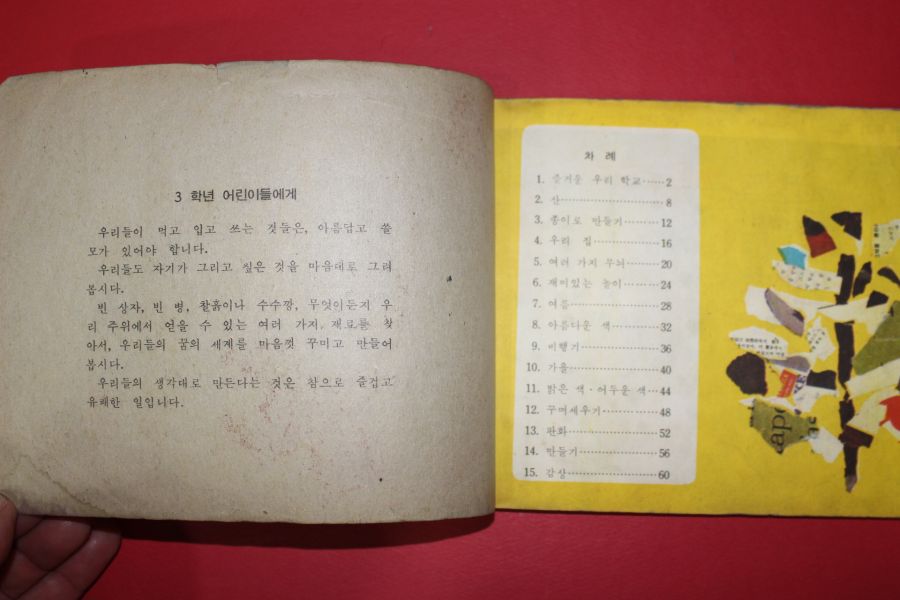 3 학년 어린이들에게
우리들이 먹고 입고 쓰는 것들은, 아름답고 쓸
모가 있어야 합니다.
우리들도 자기가 그리고 싶은 것을 마음대로 그려
봅시다.
빈 상자, 빈 병, 찰흙이나 수수깡, 무엇이든지 우
리 주위에서 얻을 수 있는 여러 가지 재료를 찾
아서, 우리들의 꿈의 세계를 마음껏 꾸미고 만들어
봅시다.
우리들의 생각대로 만든다는 것은 참으로 즐겁고
유쾌한 일입니다.
차 례
1. 즐거운 우리 학교……2
2. 산……8
3. 종이로 만들기……12
4. 우리 집……16
5. 여러 가지 무늬……20
6. 재미있는 놀이……24
7. 여름……28
8. 아름다운 색……32
9. 비행기……36
10. 가을……40
11. 밝은 색·어두운 색…44
12. 꾸며세우기……48
13. 판화……52
14. 만들기……56
15. 감상……60